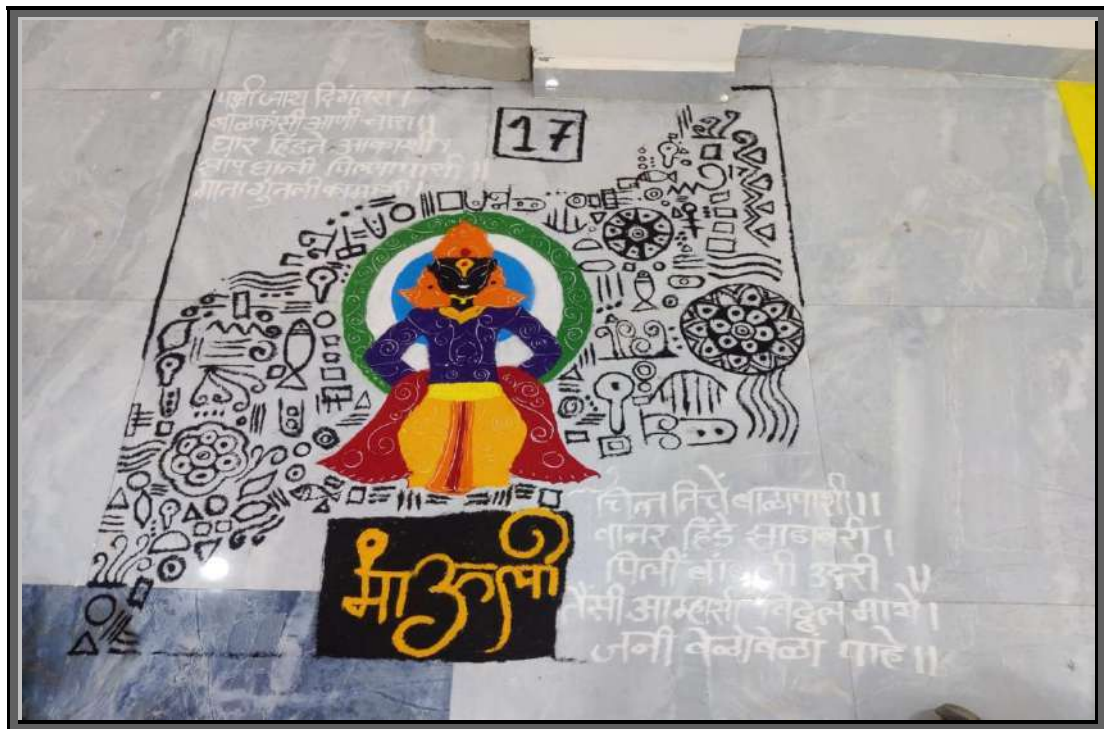 पक्षी जाय दिगंतरा ।
बाळकांसी आणी चारा ॥
घार हिंडते आकाशी ।
झांप घाली पिलापाशी ॥
माता गुंतली कामासी ।
17
चित्त तिचें बाळापाशी ॥
वानर हिंडे झाडावरी ।
पिलीं उदरी ॥
तैसी आम्हासी विठ्ठल माये ।
जनी वेळोवेळां पाहे ॥
माऊली